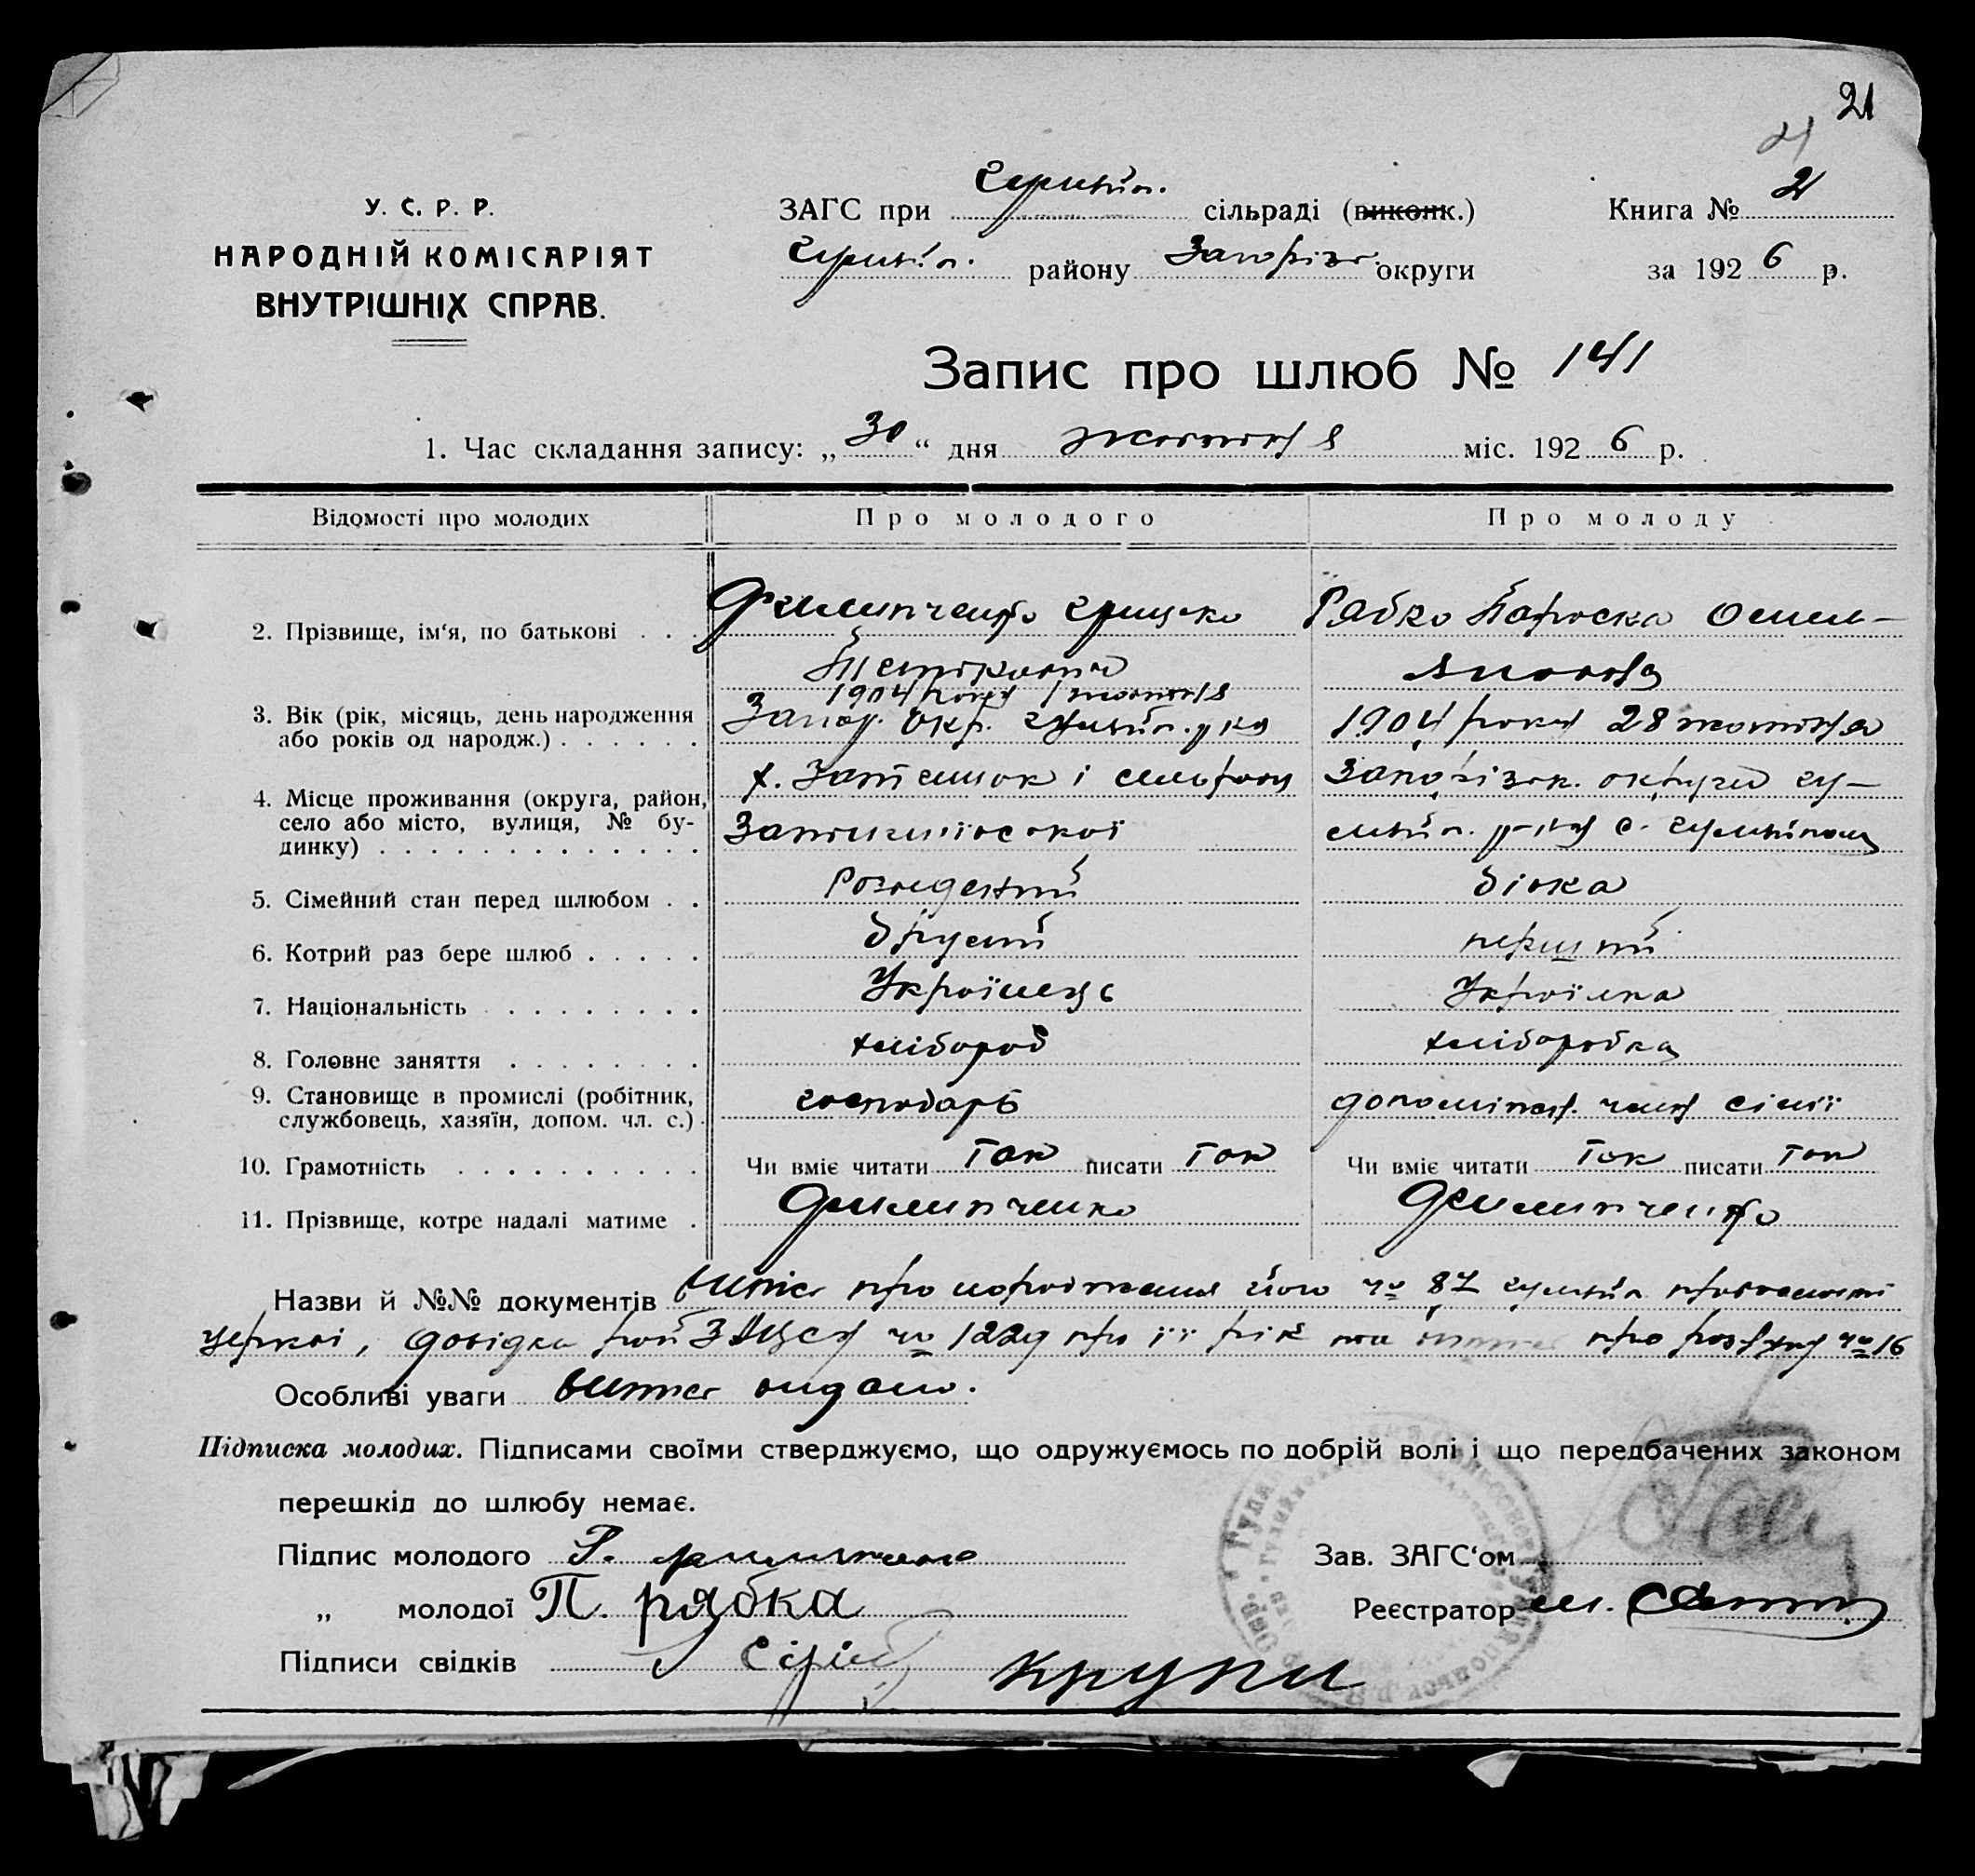 21
21
У. С. Р. Р.
НАРОДНІЙ КОМІСАРІЯТ
ВНУТРІШНІХ СПРАВ.
ЗАГС при Гуляйп. сільраді (виконк.)
Книга № 21
Гуляйп. району Запоріз. округи
за 1926 р.
Запис про шлюб № 141
1. Час складання запису: „30“ дня жовтня міс. 1926 р.
Відомості про молодих Про молодого Про молоду
2. Прізвище, ім‘я, по батькові . . . Филипченко Грицько Рябко Параска Омель-
янова
3. Вік (рік, місяць, день народження 1904 року 1 жовтня
або років од народж.) . . . . . . Запор. Окр. Гуляйп. р-ну 1904 року 28 жовтня
4. Місце проживання (округа, район, х. Затишок і сільради Запорізьк. округи Гу-
село або місто, вулиця, № бу- ляйп. р-ну с. Гуляйполе
динку) . . . . . . . . . . . . . .
5. Сімейний стан перед шлюбом . . Розведений дівка
6. Котрий раз бере шлюб . . . . . другий перший
7. Національність . . . . . . . . Українець Українка
8. Головне заняття . . . . . . . . хлібороб хлiборобка
9. Становище в промислі (робітник, господарь допоміжн. член сімії
службовець, хазяїн, допом. чл. с.) .
10. Грамотність . . . . . . . . . . Чи вміє читати так писати так Чи вміє читати так писати так
11. Прізвище, котре надалі матиме . Филипченко Филипченко
Назви й №№ документів витяг про народження його № 87 Гуляйп.
церкві, довідка рай ЗАГСу № 1229 про її рік та про розлуку № 16
Особливі уваги витяг видано.
Підписка молодих. Підписами своїми стверджуємо, що одружуємось по добрій волі і що передбачених законом
перешкід до шлюбу немає.
Підпис молодого Г. Филипченко Зав. ЗАГС‘ом
„ молодої П. рябка Реєстратор
Підписи свідків Сірий Крупи